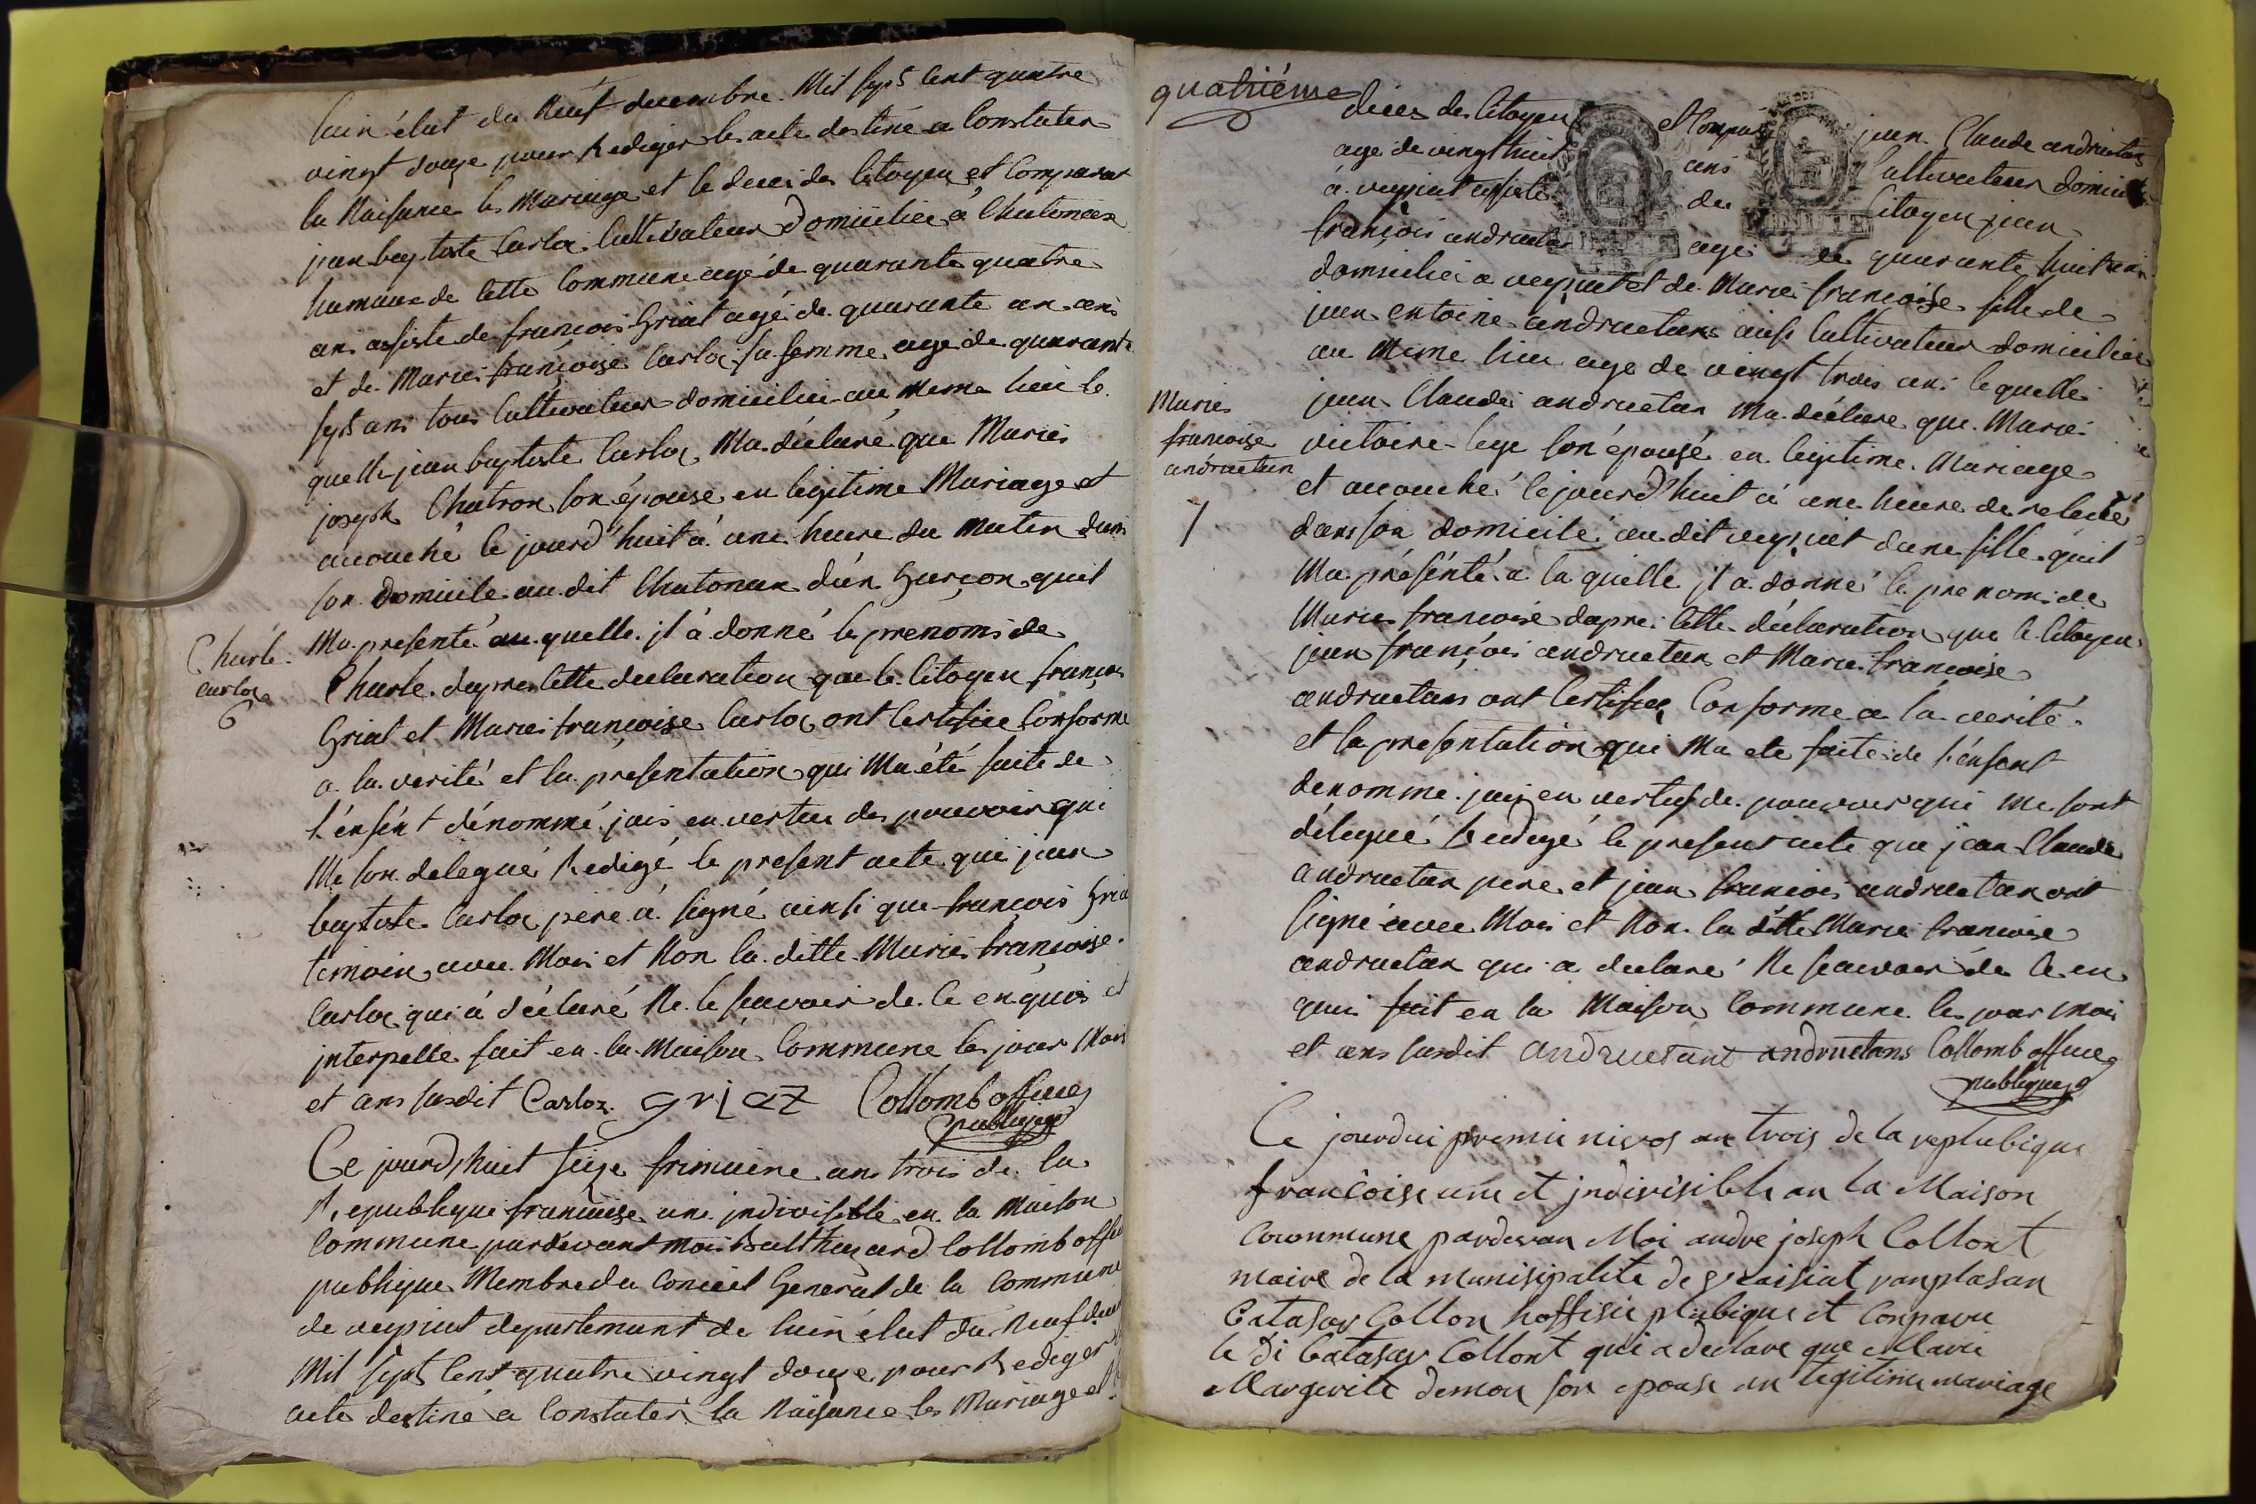 lain élut du Neuf decembre Mil sept cent quatre
vingt douze pour Rediger les acte destiné a Constater
la Naisance les Mariage et le decei des Citoyen et Comparut
jean baptiste Carloz Cultivateur Domicilier á Chatonax
hamaux de cette Commune agé de quarante quatre
ans assiste de francois Griat agé de quarante un ans
et de Marie françoise Carloz sa femme age de quarante
sept ans tous Cultivateur domicilier au meme lieu le
quelle jean baptiste Carloz Ma déclaré que Marie
joseph Chatron son épouse en legitime Mariage et
acouché le jourd'huit á une heure du matin dans
son Domicile au dit Chatonax d'un Garçon quil
Charle
carloz
Ma presenté au quelle jl á donné le prenoms de
Charle dapres cette declaration que le Citoyen françois
Griat et Marie françoise Carloz ont Certifiee Conforme
a la verité et la presentation qui Ma été faite de
l'énfent dénommé jais en vertue des pouvoir qui
Me son delegué Redigé le present acte que jean
baptiste Carloz pere á signé ainsi que françois Griat
temoin avec Moi et Non la ditte Marie françoise
Carloz qui á déclaré Ne le scavoir de ce enquis et
jnterpelle fait en la Maison Commune les jour Mois
et ans susdit Carloz griaz Collomb officier
publique
Ce jourd'huit seize frimaire ans trois de la
Republique française une jndivisible en la Maison
Commune pardevant moi Balthazard Collomb officier
publique Membre du Conceil General de la Commune
de veyziat departement de lain élut du Neuf decembre
Mil sept Cent quatre vingt douze pour Rediger les
acte destiné á Constater la Naisance les Mariage et
quatriéme
décès des Citoyen et Comparut jean Claude andruetan
age de vingt huit ans Cultivateur domicilié
á veyziat assisté du Citoyen jean
françois andruetan agé de quarante huit ans
domicilier a veyziat et de Marie françoise fille de
jean entoine andruetans aussi Cultivateur domicilier
au Meme lieu age de vingt trois ans lequelle
Marie
francoise
andruetan
jean Claude andruetan Ma déclaré que Marie
victoire son épousé en legitime Mariage
et acouché le jourd'huit á une heure de relevé
dans son domicile au dit veyziat dune fille quil
Ma présénté a la quelle jl a donné le prenom de
Marie francoise dapre cette déclaration que le Citoyen
jean françois andruetan et Marie francoise
andruetans ont Certifiee Conforme a la verité
et la presentation qui Ma ete faite de l'énfent
denomme jais en vertus des pouvoir qui me sont
délegué Redigé le present acte que jean Claude
andruetan pere et jean francois andruetan ont
signé avec Moi et Non la ditte Marie francoise
andruetan qui a declaré Ne scavoir de ce en
quis fait en la Maison Commune les jour mois
et ans susdit andruetant andruetans Collomb officier
publique
Ce jourdui premie nivos an trois de la replubique
francoise une et jndivisible an la Maison
Commune pardevan Moi andre joseph Collont
maire de la munisipalite de
Batasar Collon hoffisie plubique et Conparu
le di Batasar Collont qui a declare que Marie
Margerite son epouse en legitime mariage